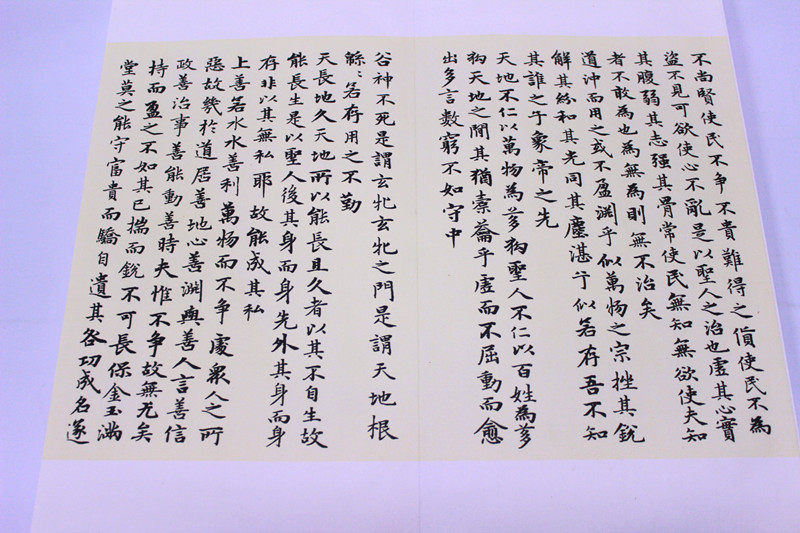 不尚賢使民不争不貴難得之貨使民不為
盜不見可欲使心不亂是以聖人之治也虛其心實
其腹弱其志强其骨常使民無知無欲使夫知
者不敢為也為無為則無不治矣
道沖而用之或不盈淵乎似萬物之宗挫其銳
解其紛和其光同其塵湛乎似若存吾不知
其誰之子象帝之先
天地不仁以萬物為芻狗聖人不仁以百姓為芻
狗天地之間其猶橐籥乎虛而不屈動而愈
出多言數窮不如守中
谷神不死是謂玄牝玄牝之門是謂天地根
緜〻若存用之不勤
天長地久天地所以能長且久者以其不自生故
能長生是以聖人後其身而身先外其身而身
存非以其無私耶故能成其私
上善若水水善利萬物而不争處衆人之所
惡故幾於道居善地心善淵與善人言善信
政善治事善能動善時夫惟不争故無尤矣
持而盈之不如其已揣而銳不可長保金玉滿
堂莫之能守富貴而驕自遺其咎功成名遂